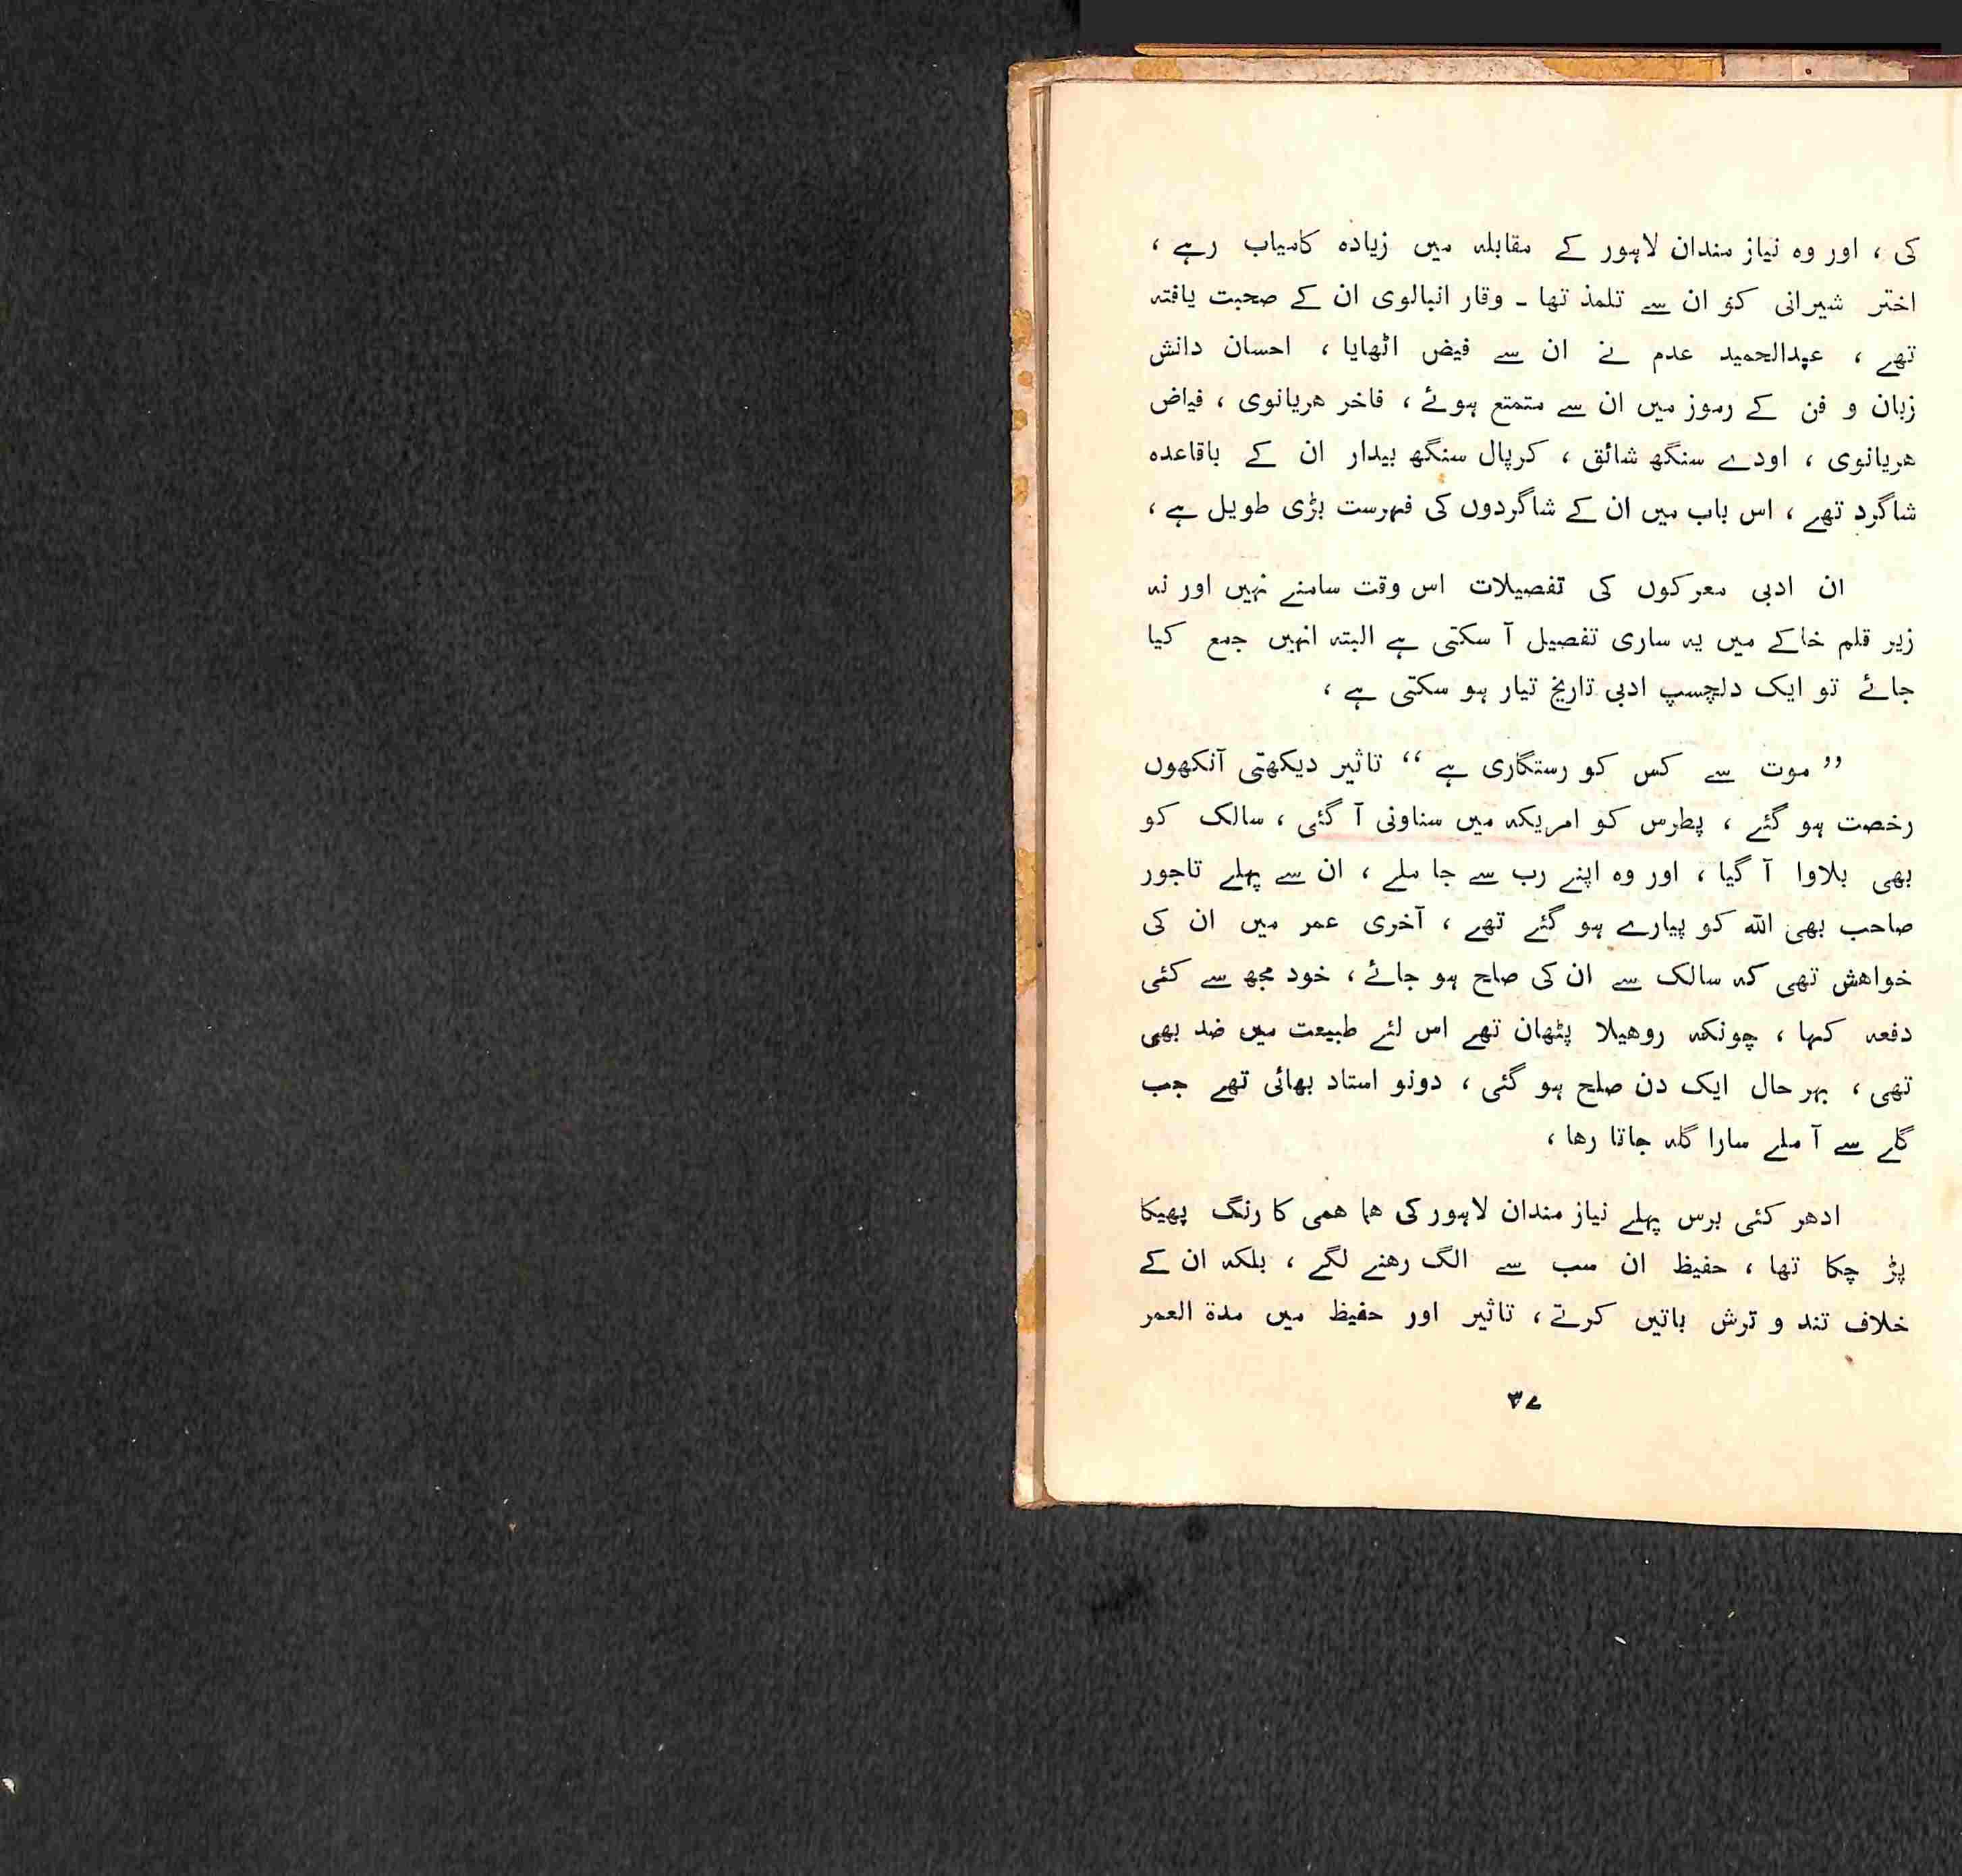 کی ، اور وہ نیاز مندان لاہور کے مقابلہ میں زیادہ کامیاب رہے ،
اختر شیرانی کو ان سے تلمذ تھا ۔ وقار انبالوی ان کے صحبت یافتہ
تھے ، عبدالحمید عدم نے ان سے فیض اٹھایا ، احسان دانش
زبان و فن کے رموز میں ان سے متمتع ہوئے ، فاخر ھریانوی ، فیاض
ھریانوی ، اودے سنگھ شائق ، کرپال سنگھ بیدار ان کے باقاعدہ
شاگرد تھے ، اس باب میں ان کے شاگردوں کی فہرست بڑی طویل ہے ،
ان ادبی معرکوں کی تفصیلات اس وقت سامنے نہیں اور نہ
زیر قلم خاکے میں یہ ساری تفصیل آ سکتی ہے البتہ انہیں جمع کیا
جائے تو ایک دلچسپ ادبی تاریخ تیار ہو سکتی ہے ،
” موت سے کس کو رستگاری ہے “ تاثیر دیکھتی آنکھوں
رخصت ہو گئے ، پطرس کو امریکہ میں سناونی آ گئی ، سالک کو
بھی بلاوا آ گیا ، اور وہ اپنے رب سے جا ملے ، ان سے پہلے تاجور
صاحب بھی اللہ کو پیارے ہو گئے تھے ، آخری عمر میں ان کی
خواھش تھی کہ سالک سے ان کی صلح ہو جائے ، خود مجھ سے کئی
دفعہ کہا ، چونکہ روھیلا پٹھان تھے اس لئے طبیعت میں ضد بھی
تھی ، بہر حال ایک دن صلح ہو گئی ، دونو استاد بھائی تھے جب
گلے سے آ ملے سارا گلہ جاتا رھا ،
ادھر کئی برس پہلے نیاز مندان لاہور کی ھما ھمی کا رنگ پھیکا
پڑ چکا تھا ، حفیظ ان سب سے الگ رھنے لگے ، بلکہ ان کے
خلاف تند و ترش باتیں کرتے ، تاثیر اور حفیظ میں مدۃ العمر
۳۷